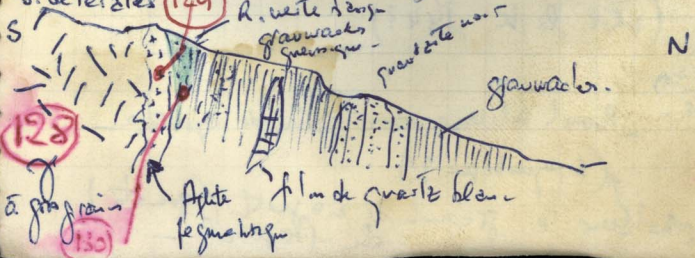 129
S
R. verte basique
grauwacke
gneissique
quartzite noir
N
grauwackes.
128
à gros grains
Aplite
pegmatitique
filon de quartz blanc
130